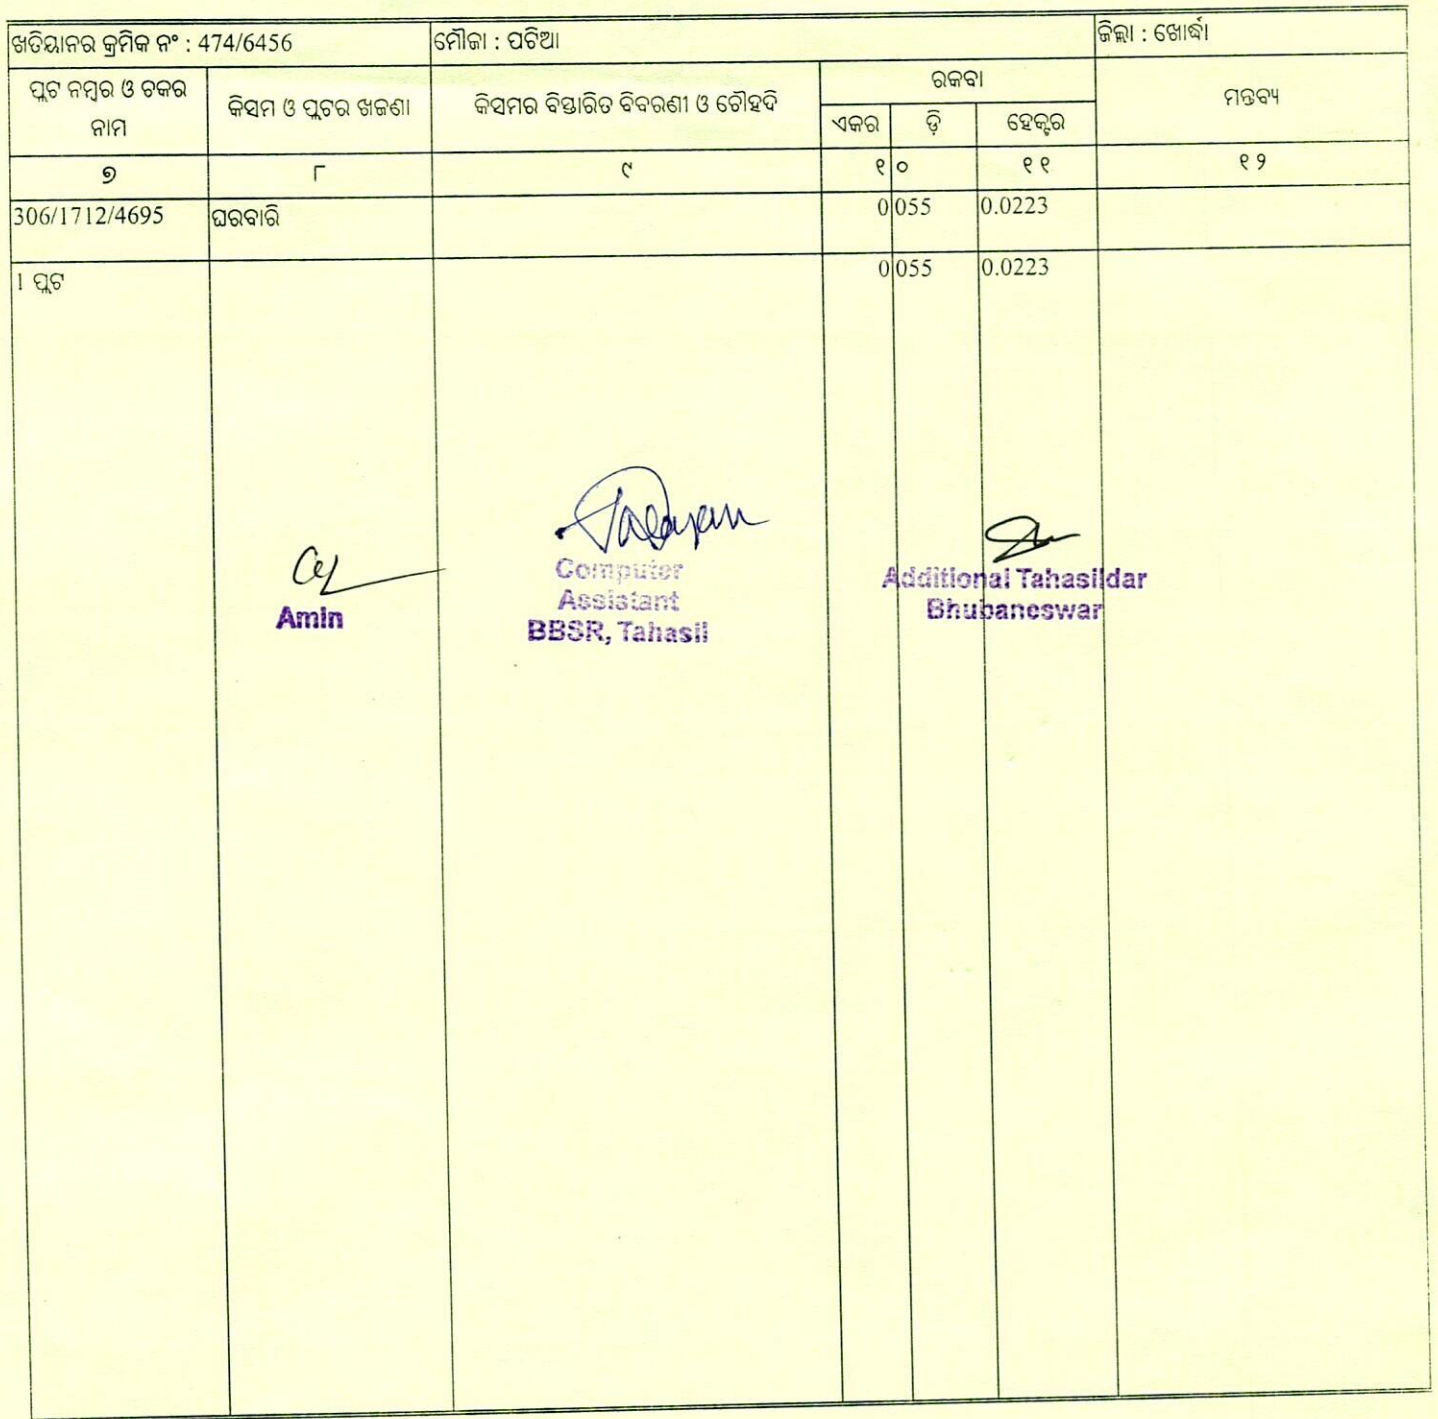 ଖତିୟାନର କ୍ରମିକ ନଂ : 474/6456 ମୌଜା : ପଟିଆ ଜିଲ୍ଲା : ଖୋର୍ଦ୍ଧା
ପ୍ଲଟ ନମ୍ବର ଓ ଚକର ନାମ
କିସମ ଓ ପ୍ଲଟର ଖଜଣା
କିସମର ବିସ୍ତାରିତ ବିବରଣୀ ଓ ଚୌହଦି
ରକବା
ଏକର ଡ଼ି ହେକ୍ଟର
ମନ୍ତବ୍ୟ
୭ ୮ ୯ ୧୦ ୧୧ ୧୨
306/1712/4695 ଘରବାରି 0 055 0.0223
1 ପ୍ଲଟ 0 055 0.0223
Amin
Computer
Assistant
BBSR, Tahasil
Additional Tahasildar
Bhubaneswar